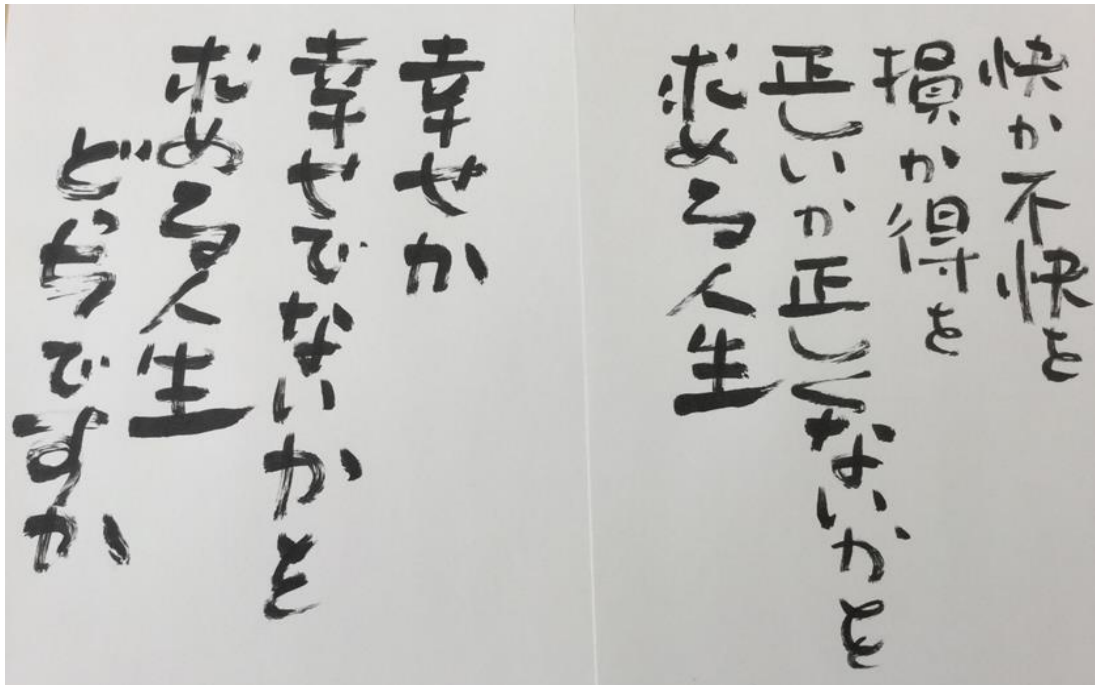 快か不快を
損か得を
正しいか正しくないかを
求める人生
幸せか
幸せでないかを
求める人生
どっちですか